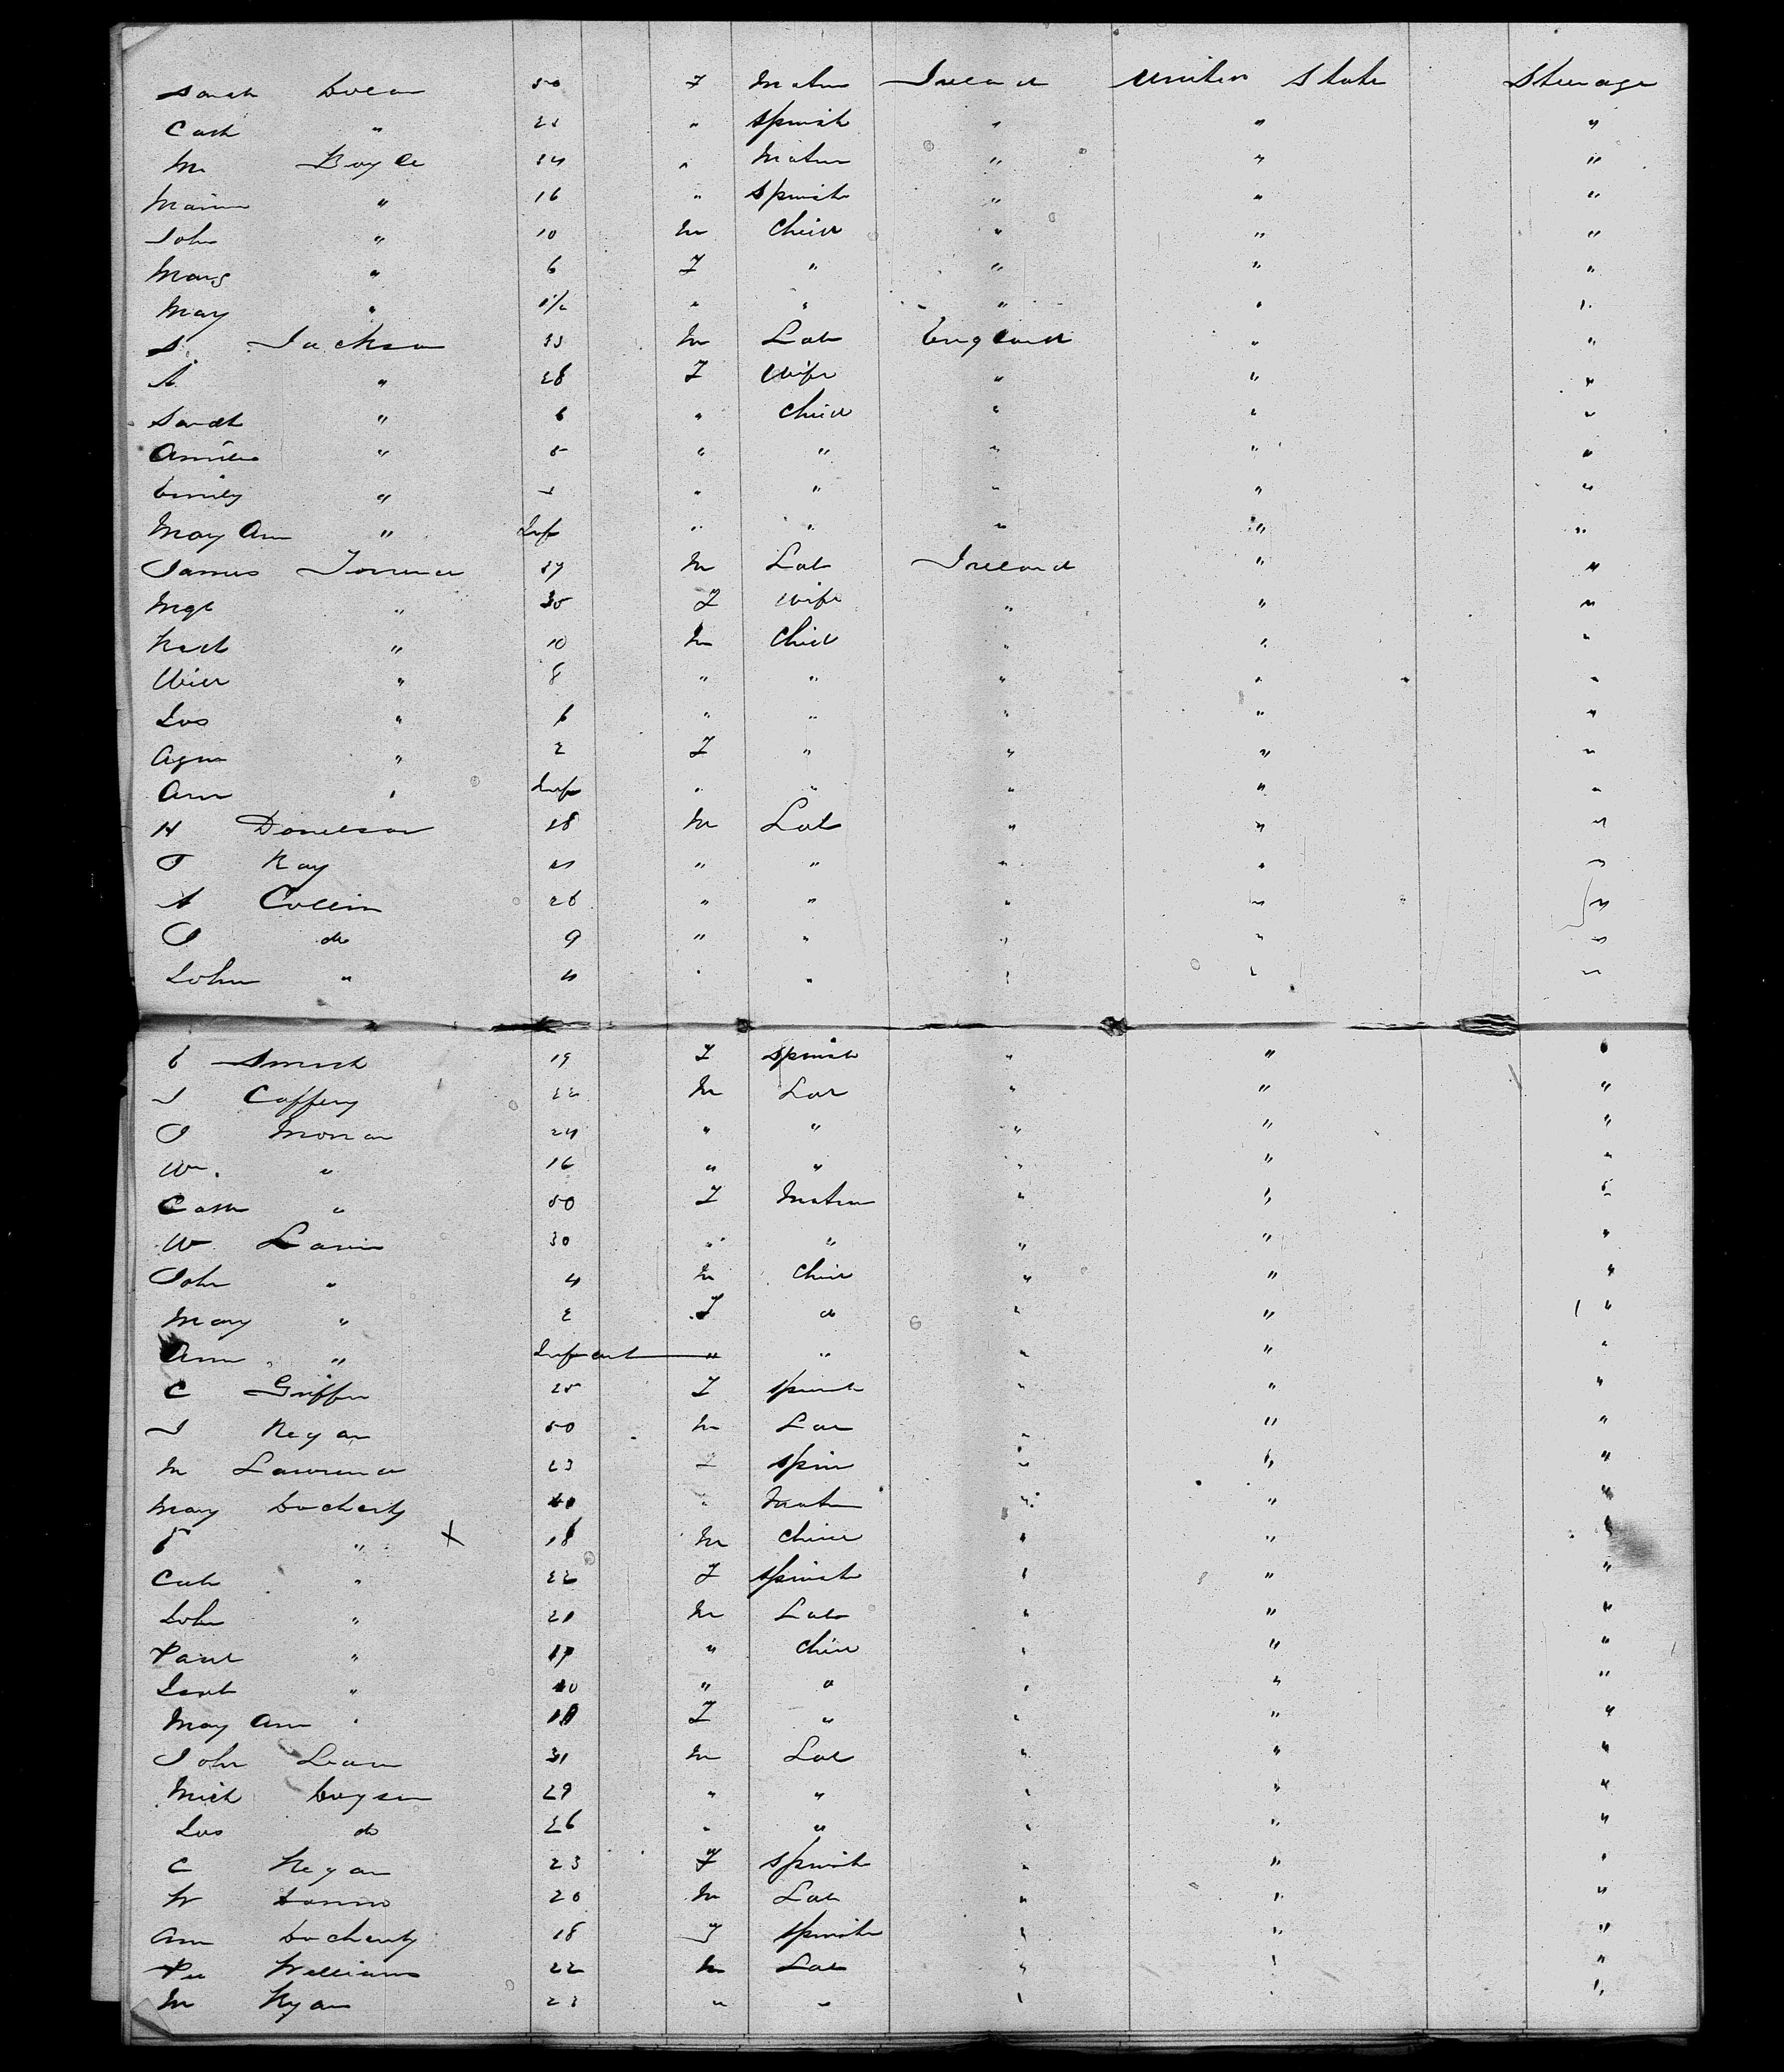 Sarah Dolan 50 F Matrn Ireland United State Steerage
Cath " 25 " Spinst " " "
M Boyle 34 " Matrn " " "
" 16 " Spinst " " "
John " 10 M Child " " "
Marg " 6 F " " " "
May " 1½ " " " " "
S. Jackson 33 M Lab England " "
A " 28 F Wife " " "
Sarah " 6 " Child " " "
" 5 " " " " "
Emily " " " " " "
May Ann " Inf " " " " "
James Torrence 37 M Lab Ireland " "
Mgt " 35 F Wife " " "
" 10 M Child " " "
Will " 8 " " " " "
Jos " 6 " " " " "
Agn " 2 F " " " "
Ann " Inf " " " " "
H Donelson 28 M Lab " " "
J Ray " " " " "
A Collin 26 " " " " "
J do 9 " " " " "
John " 4 " " " " "
E Smith 19 F Spinst " " "
J Caffery 22 M Lab " " "
J Moran 24 " " " " "
Wm. " 16 " " " " "
Cath " 50 F Matrn " " "
W Lavin 30 " " " " "
John " 4 M Child " " "
Mary " 2 F do " " "
Ann " Infant " " " " "
C Griffin 25 F Spinst " " "
J Regan 50 M Lab " " "
M Lawrence 23 " Spin " " "
May Docherty 40 " Matrn " " "
" X 18 M Child " " "
Cath " 22 F Spinst " " "
John " 21 M Lab " " "
" " Child " " "
" 10 " " " " "
May Ann " F " " " "
John Lean 31 M Lab " " "
Mich 29 " " " " "
Jos do 26 " " " " "
C Regan 23 F Spinst " " "
W 20 M Lab " " "
Ann Docherty 18 F Spinster " " "
Williams 22 M Lab " " "
M Ryan 23 " " " " "